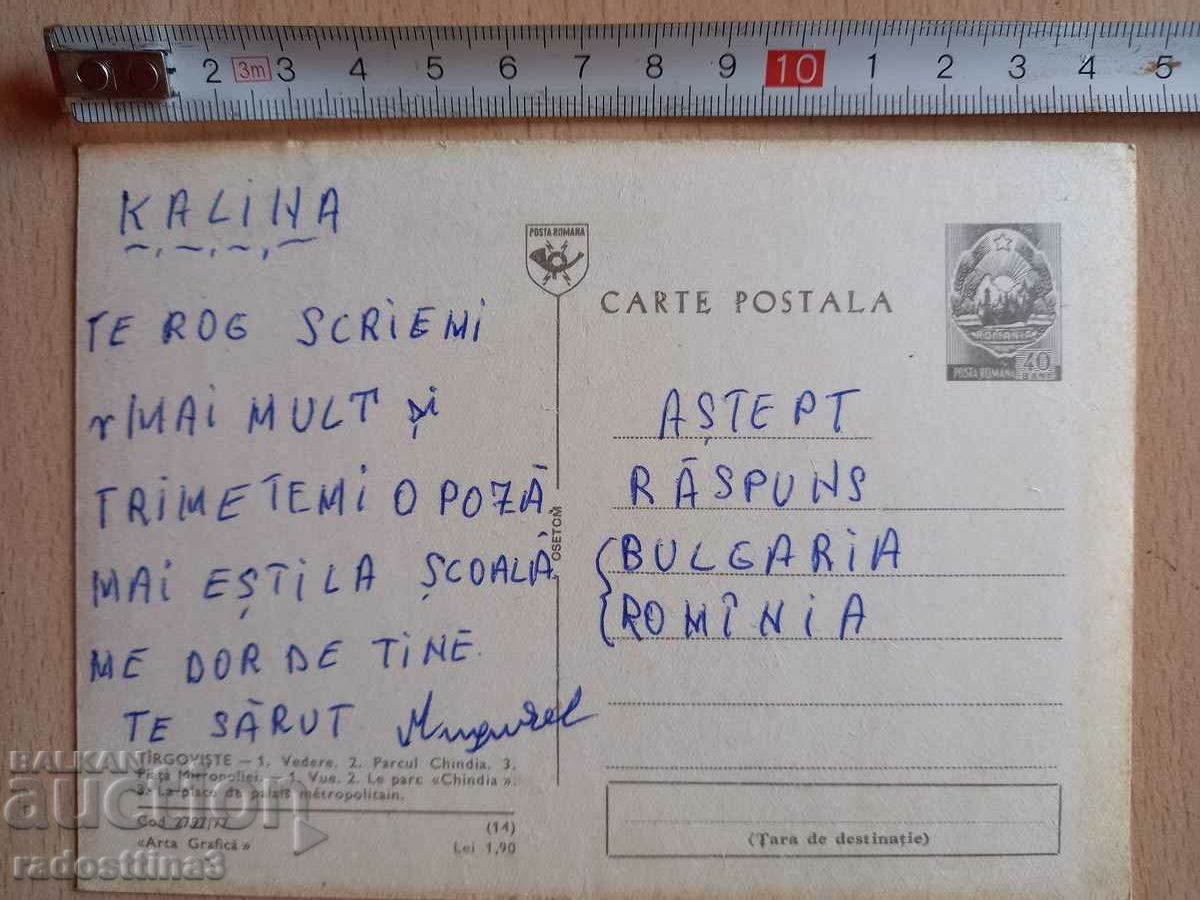 2 3m 3 4 5 6 7 8 9 10 1 2 3 4 5
KALINA
TE ROG SCRIEMI
MAI MULT și
TRIMETEMI O POZĂ
MAI EȘTI LA ȘCOALĂ
ME DOR DE TINE.
TE SĂRUT Mugurel
TÎRGOVIȘTE — 1. Vedere. 2. Parcul Chindia. 3.
Piața Mitropoliei. — 1. Vue. 2. Le parc «Chindia».
3. La place de palais métropolitain.
Cod 2797/77 (14)
«Arta Grafică» Lei 1,90
POSTA ROMANA
OSETOM
CARTE POSTALA
ROMANIA
POSTA ROMANA 40 BANI
AȘTEPT
RĂSPUNS
BULGARIA
ROMÎNIA
(Țara de destinație)
BALKAN
auction
radosttina3